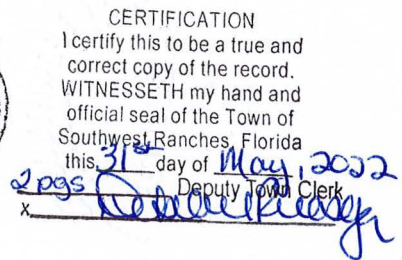 CERTIFICATION
I certify this to be a true and
correct copy of the record.
WITNESSETH my hand and
official seal of the Town of
Southwest Ranches, Florida
this 31st day of May, 2022
2 pgs Deputy Town Clerk
x